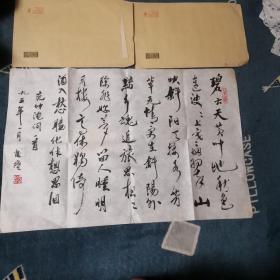 碧云天黄叶地秋色
连波波上寒烟翠山
映斜阳天接水芳
草无情更在斜阳外
黯乡魂追旅思夜夜
除非好梦留人睡明
月楼高休独倚
酒入愁肠化作相思泪
范仲淹词一首
九五年一月
PILLOWCASE